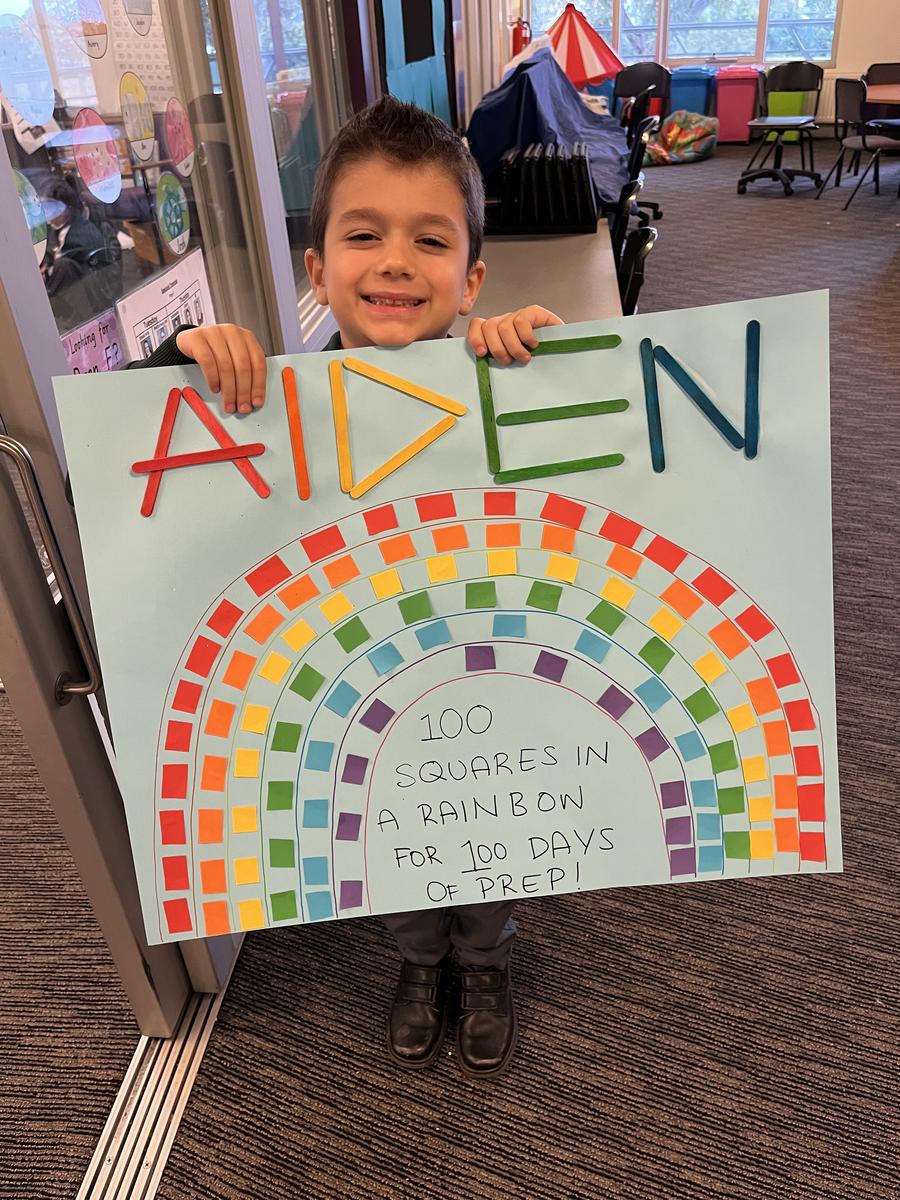 AIDEN
100
SQUARES IN
A RAINBOW
FOR 100 DAYS
OF PREP!
Looking for